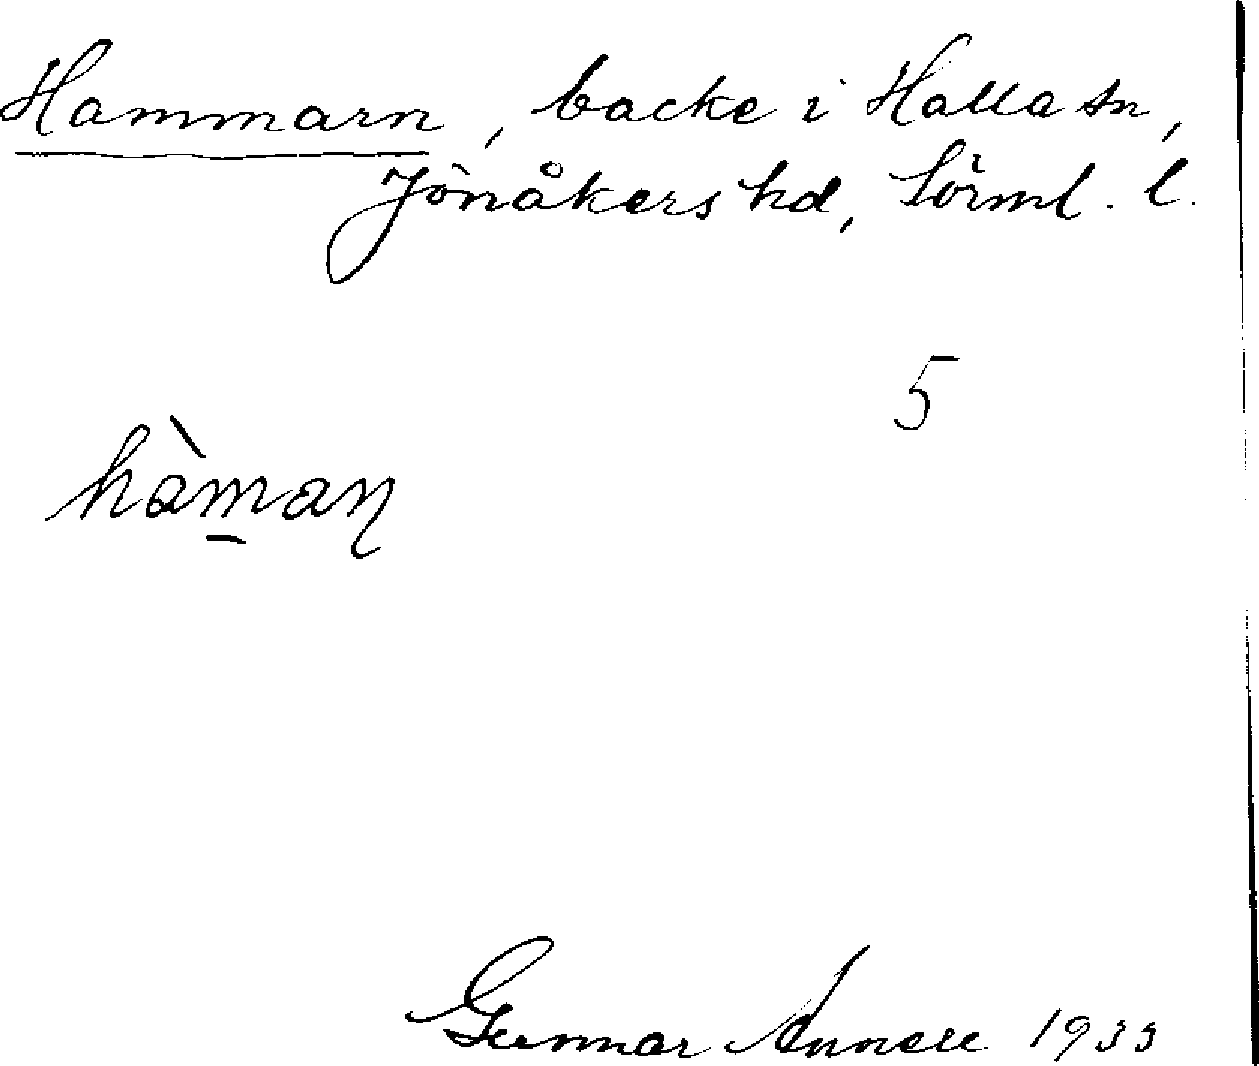 Hammarn, backe i Halla sn,
Jönåkers hd, Sörml. l.
5
hàm̲aɳ
Gunnar Annell 1933